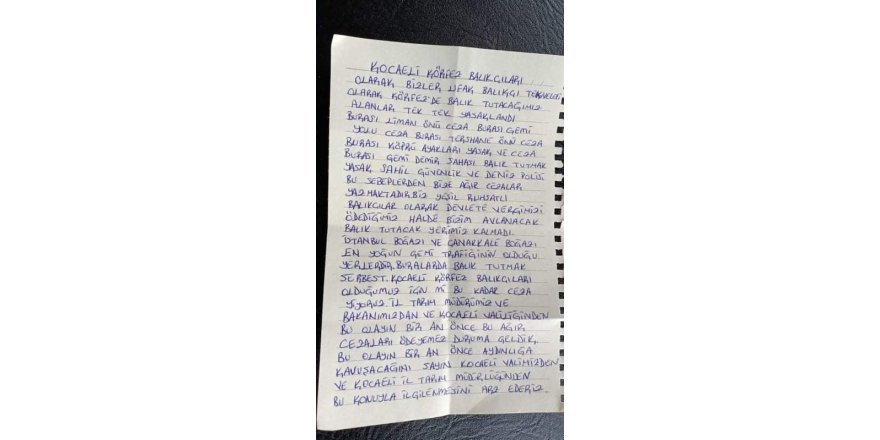 KOCAELİ KÖRFEZ BALIKCILARI
OLARAK, BİZLER UFAK BALIKÇI TEKNELERİ
OLARAK KÖRFEZ'DE BALIK TUTACAĞIMIZ
ALANLAR TEK TEK YASAKLANDI
BURASI LİMAN ÖNÜ CEZA BURASI GEMİ
YOLU CEZA BURASI TERSHANE ÖNÜ CEZA
BURASI KÖPRÜ AYAKLARI YASAK VE CEZA
BURASI GEMİ DEMİR SAHASI BALIK TUTMAK
YASAK, SAHİL GÜVENLİK VE DENİZ POLİSİ
BU SEBEPLERDEN BİZE AĞIR CEZALAR
YAZMAKTADIR.BİZ YEŞİL RUHSATLI
BALIKCILAR OLARAK DEVLETE VERGİMİZİ
ÖDEDİĞİMİZ HALDE BİZİM AVLANACAK
BALIK TUTACAK YERİMİZ KALMADI.
İSTANBUL BOĞAZI VE ÇANAKKALE BOĞAZI
EN YOĞUN GEMİ TRAFİĞİNİN OLDUĞU
YERLERDİR.BURALARDA BALIK TUTMAK
SERBEST. KOCAELİ KÖRFEZ BALIKCILARI
OLDUĞUMUZ İÇİN Mİ BU KADAR CEZA
YİYORUZ. İL TARIM MÜDÜRÜMÜZ VE
BAKANIMIZDAN VE KOCAELİ VALİLİĞİNDEN
BU OLAYIN BİR AN ÖNCE BU AĞIR
CEZALARI ÖDEYEMEZ DURUMA GELDİK,
BU OLAYIN BİR AN ÖNCE AYDINLIĞA
KAVUŞACAĞINI SAYIN KOCAELİ VALİMİZDEN
VE KOCAELİ İL TARIM MÜDÜRLÜĞÜNDEN
BU KONUYLA İLGİLENMESİNİ ARZ EDERİZ.